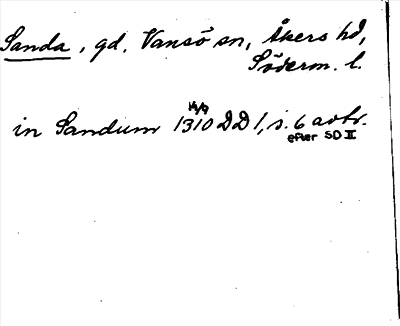 Sanda, gd, Vansö sn, Åkers hd,
Söderm. l.
14/9
in Sandum 1310 DD 1, s. 6 avtr.
efter SD II